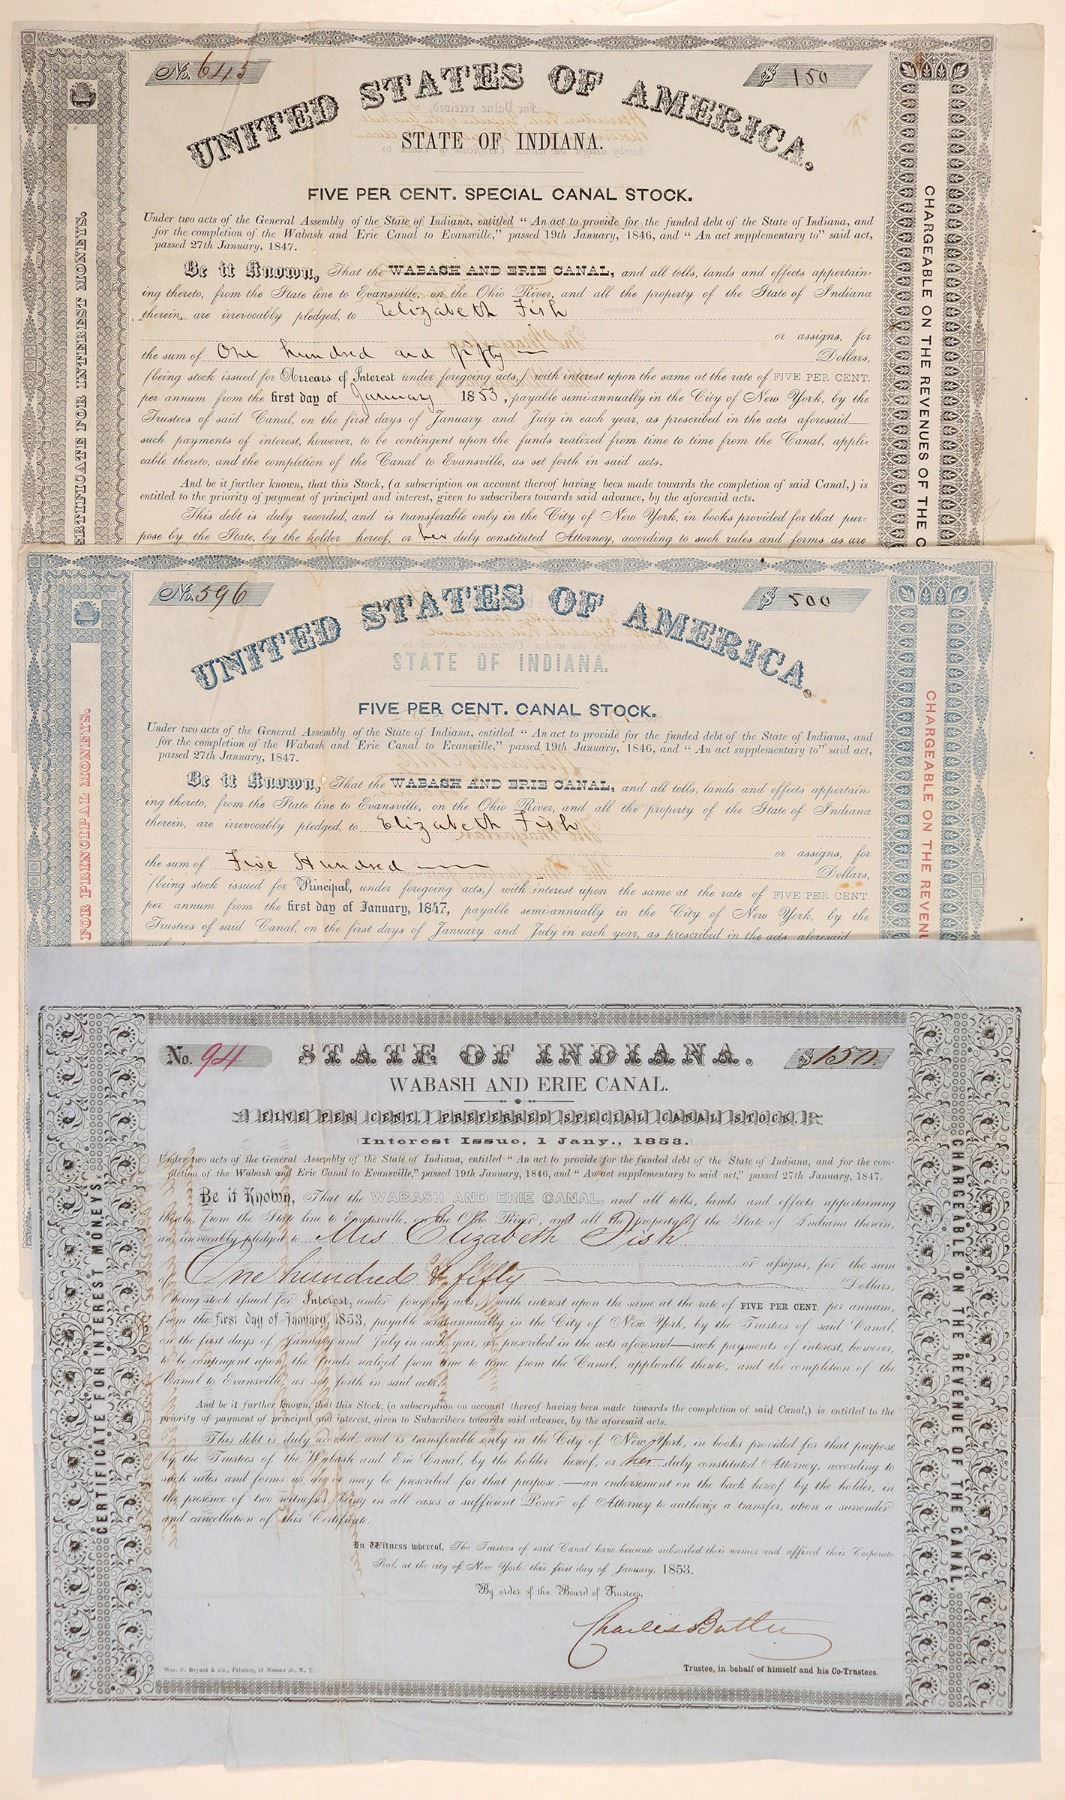 No. 645
$ 150
UNITED STATES OF AMERICA.
STATE OF INDIANA.
FIVE PER CENT. SPECIAL CANAL STOCK.
Under two acts of the General Assembly of the State of Indiana, entitled " An act to provide for the funded debt of the State of Indiana, and
for the completion of the Wabash and Erie Canal to Evansville," passed 19th January, 1846, and " An act supplementary to" said act,
passed 27th January, 1847.
Be it Known, That the WABASH AND ERIE CANAL, and all tolls, lands and effects appertain-
ing thereto, from the State line to Evansville, on the Ohio River, and all the property of the State of Indiana
therein, are irrevocably pledged, to Elizabeth Fish
or assigns, for
the sum of One hundred and fifty Dollars,
(being stock issued for Arrears of Interest under foregoing acts,) with interest upon the same at the rate of FIVE PER CENT.
per annum from the first day of January 1853, payable semi-annually in the City of New York, by the
Trustees of said Canal, on the first days of January and July in each year, as prescribed in the acts aforesaid
such payments of interest, however, to be contingent upon the funds realized from time to time from the Canal, appli-
cable thereto, and the completion of the Canal to Evansville, as set forth in said acts.
And be it further known, that this Stock, (a subscription on account thereof having been made towards the completion of said Canal,) is
entitled to the priority of payment of principal and interest, given to subscribers towards said advance, by the aforesaid acts.
This debt is duly recorded, and is transferable only in the City of New York, in books provided for that pur-
pose by the State, by the holder hereof, or her duly constituted Attorney, according to such rules and forms as are
CERTIFICATE FOR INTEREST MONEYS.
CHARGEABLE ON THE REVENUES OF THE C
No. 596
$ 500
UNITED STATES OF AMERICA.
STATE OF INDIANA.
FIVE PER CENT. CANAL STOCK.
Under two acts of the General Assembly of the State of Indiana, entitled " An act to provide for the funded debt of the State of Indiana, and
for the completion of the Wabash and Erie Canal to Evansville," passed 19th January, 1846, and " An act supplementary to" said act,
passed 27th January, 1847.
Be it Known, That the WABASH AND ERIE CANAL, and all tolls, lands and effects appertain-
ing thereto, from the State line to Evansville, on the Ohio River, and all the property of the State of Indiana
therein, are irrevocably pledged, to Elizabeth Fish
or assigns, for
the sum of Five Hundred Dollars,
(being stock issued for Principal, under foregoing acts,) with interest upon the same at the rate of FIVE PER CENT
per annum from the first day of January, 1847, payable semi-annually in the City of New York, by the
Trustees of said Canal, on the first days of January and July in each year, as prescribed in the acts aforesaid
FOR PRINCIPAL MONEYS.
CHARGEABLE ON THE REVENU
No. 94
STATE OF INDIANA.
$150.
WABASH AND ERIE CANAL.
FIVE PER CENT. PREFERRED SPECIAL CANAL STOCK.
(Interest Issue, 1 Jany., 1853.
Under two acts of the General Assembly of the State of Indiana, entitled " An act to provide for the funded debt of the State of Indiana, and for the com-
pletion of the Wabash and Erie Canal to Evansville," passed 19th January, 1846, and " An act supplementary to said act," passed 27th January, 1847.
Be it Known, That the WABASH AND ERIE CANAL, and all tolls, lands and effects appertaining
thereto, from the State line to Evansville, on the Ohio River, and all the property of the State of Indiana therein,
are irrevocably pledged to Mrs Elizabeth Fish
or assigns, for the sum
of One hundred & fifty Dollars,
(being stock issued for Interest, under foregoing acts,) with interest upon the same at the rate of FIVE PER CENT. per annum,
from the first day of January, 1853, payable semi-annually in the City of New York, by the Trustees of said Canal,
on the first days of January and July in each year, as prescribed in the acts aforesaid—such payments of interest, however,
to be contingent upon the funds realized from time to time from the Canal, applicable thereto, and the completion of the
Canal to Evansville, as set forth in said acts.
And be it further known, that this Stock, (a subscription on account thereof having been made towards the completion of said Canal,) is entitled to the
priority of payment of principal and interest, given to Subscribers towards said advance, by the aforesaid acts.
This debt is duly recorded, and is transferable only in the City of New York, in books provided for that purpose
by the Trustees of the Wabash and Erie Canal, by the holder hereof, or her duly constituted Attorney, according to
such rules and forms as are or may be prescribed for that purpose—an endorsement on the back hereof by the holder, in
the presence of two witnesses, being in all cases a sufficient Power of Attorney to authorize a transfer, upon a surrender
and cancellation of this Certificate.
In Witness whereof, The Trustees of said Canal have hereunto subscribed their names and affixed their Corporate
Seal, at the city of New York, this first day of January, 1853.
By order of the Board of Trustees,
Charles Butler
Trustee, in behalf of himself and his Co-Trustees.
Wm. C. Bryant & Co., Printers, 18 Nassau st., N. Y.
CERTIFICATE FOR INTEREST MONEYS.
CHARGEABLE ON THE REVENUE OF THE CANAL.